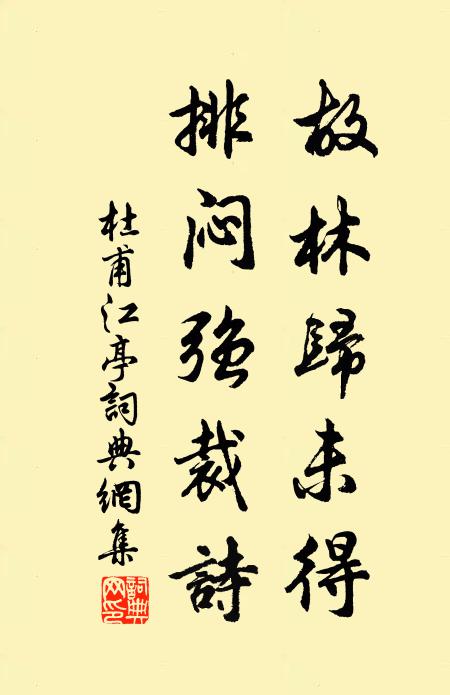 故林歸未得
排闷强裁詩
杜甫江亭詞典網集
詞典网印